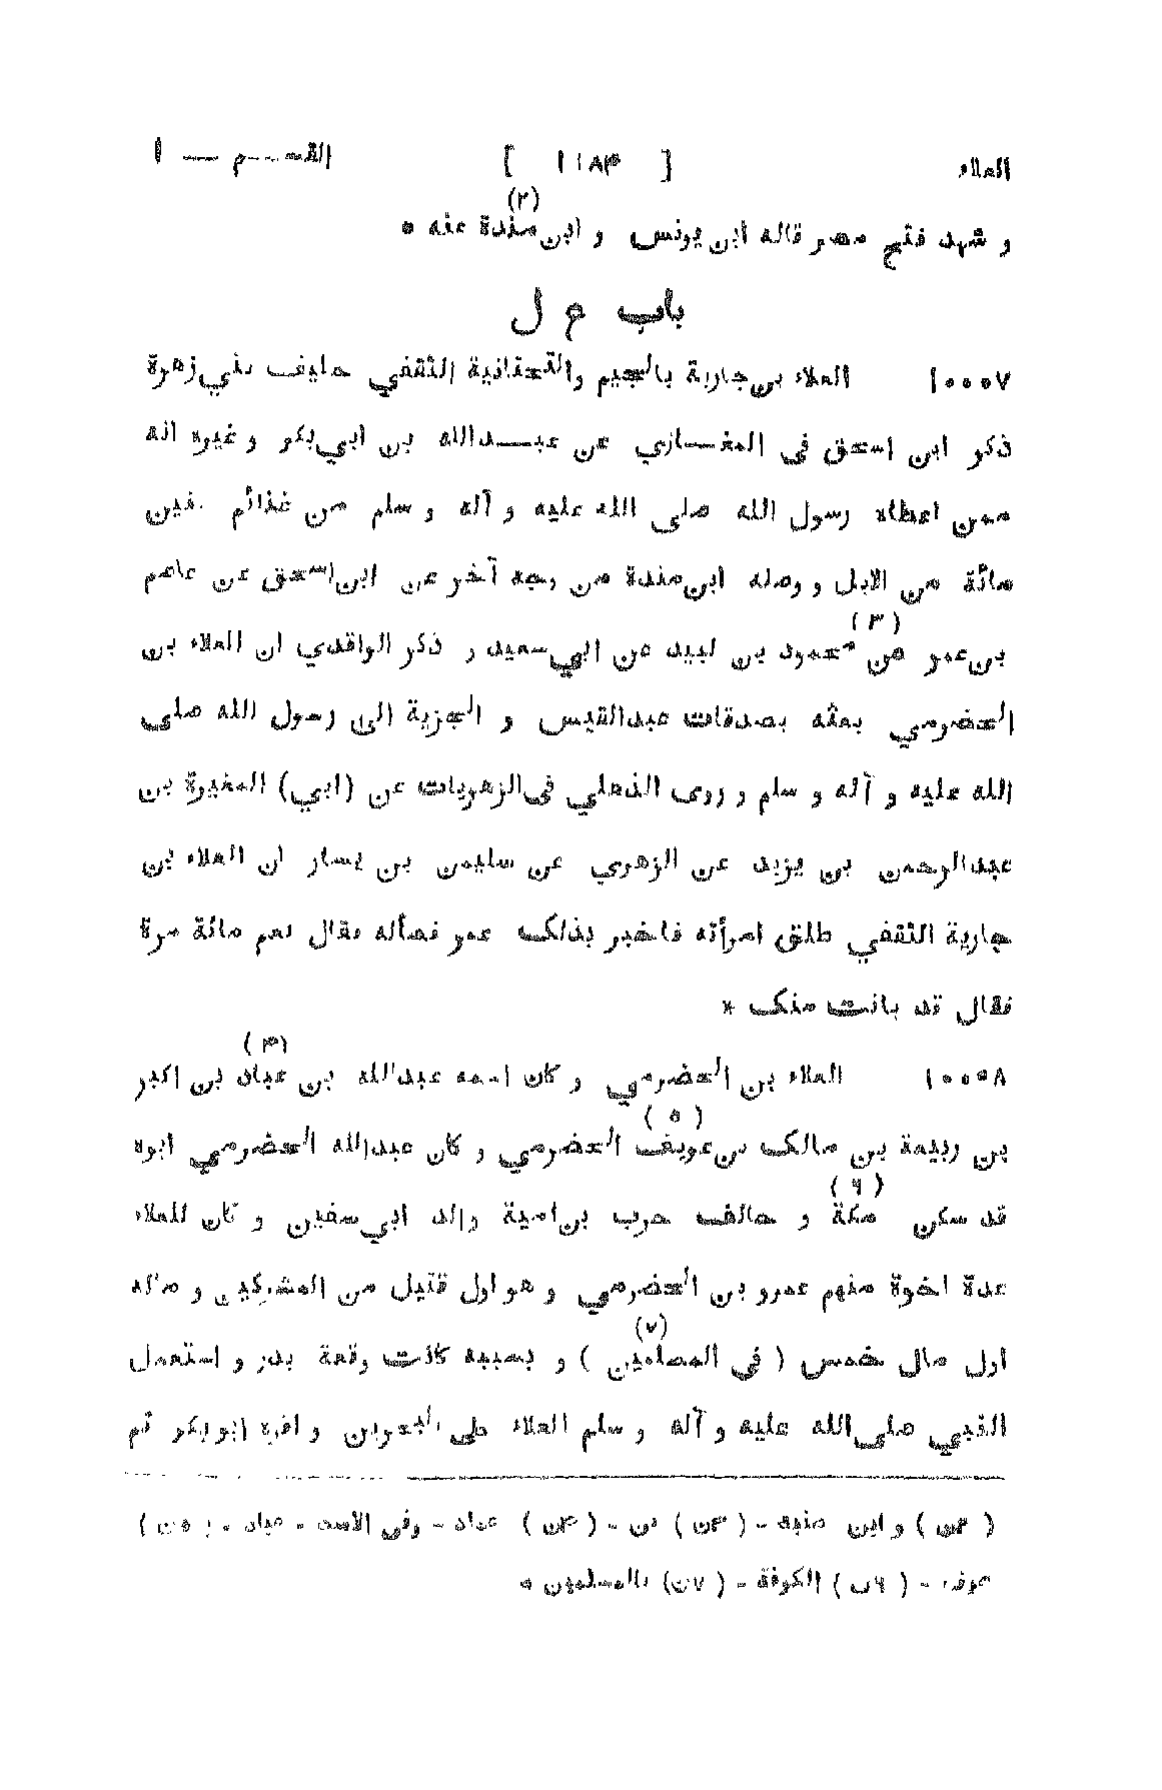 العلاء [ ١١٨٣ ] القســم — ١
(٢)
و شهد فتح مصر قاله ابن يونس و ابن مندة عنه *
باب ع ل
١٠٠٠٧ العلاء بن جارية بالجيم والتحتانية الثقفي حليف بني زهرة
ذكر ابن اسحق فى المغــازي عن عبــدالله بن ابي بكر و غيره انه
ممن اعطاه رسول الله صلى الله عليه و آله و سلم من غنائم حنين
مائة من الابل و وصله ابن مندة من وجه آخر عن ابن اسحق عن عاصم
(٣)
بن عمر عن محمود بن لبيد عن ابي سعيد و ذكر الواقدي ان العلاء بن
الحضرمي بعثه بصدقات عبدالقيس و الجزية الى رسول الله صلى
الله عليه و آله و سلم و روى الذهلي فى الزهريات عن (ابي) المغيرة بن
عبدالرحمن بن يزيد عن الزهري عن سليمن بن يسار ان العلاء بن
جارية الثقفي طلق امرأته فاخبر بذلك عمر فسأله فقال نعم مائة مرة
فقال قد بانت منك *
(٤)
١٠٠٠٨ العلاء بن الحضرمي و كان اسمه عبدالله بن عباد بن اكبر
(٥)
بن ربيعة بن مالك بن عويف الحضرمي و كان عبدالله الحضرمي ابوه
(٦)
قد سكن مكة و حالف حرب بن امية والد ابي سفين و كان للعلاء
عدة اخوة منهم عمرو بن الحضرمي و هو اول قتيل من المشركين و ماله
(٧)
اول مال خمس ( في المسلمين ) و بسببه كانت وقعة بدر و استعمل
النبي صلى الله عليه و آله و سلم العلاء على البحرين و اقره ابو بكر ثم
و ابن منبه - ( ٣ن ) بن - ( ٤ن ) عماد - وفى الاسد - عباد -
( ٦ن ) الكوفة - ( ٧ن ) بالمسلمين *